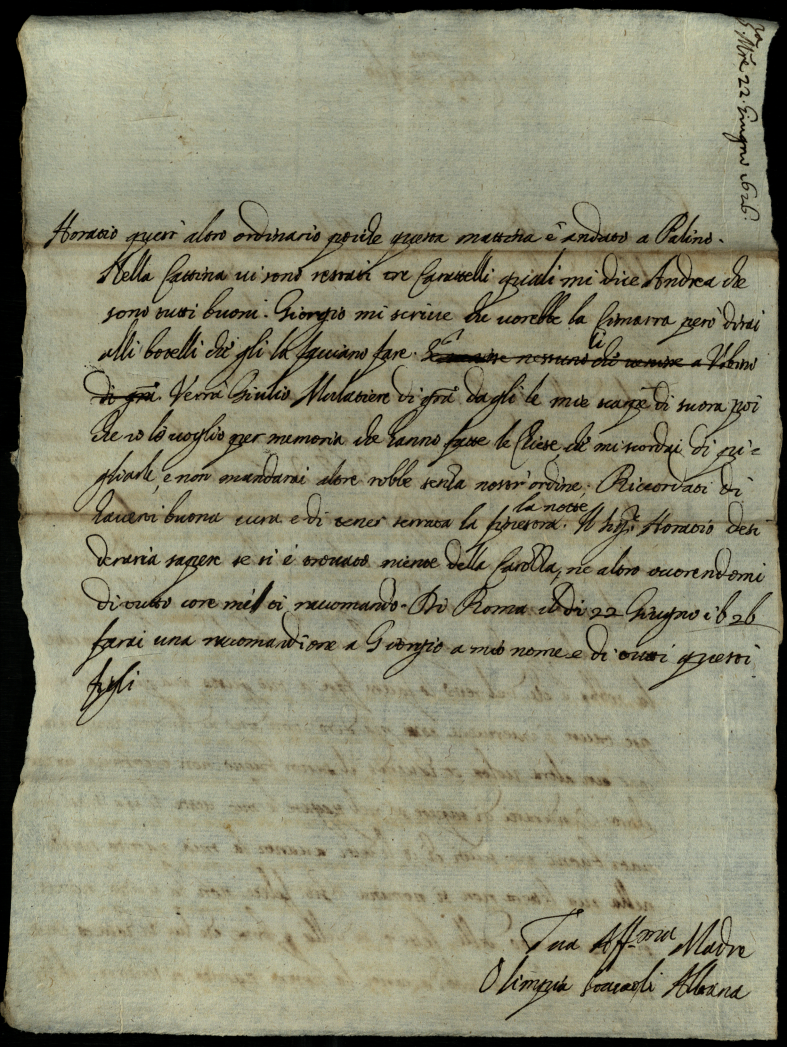 S.ra M.re 22 Giugno 1626
Horatio quest' altro ordinario poiche questa mattina è andato a Palino.
Nella Cantina vi sono restati tre Carattelli quali mi dice Andrea che
sono tutti buoni. Giorgio mi scrive che vorebbe la Cimarra però dirai
alli che gli la facciano fare. nessuno che venisse a
di gra. Verrà Giulio Mulattiere di gra dagli le mie scarpe di suora poi
che io le voglio per memoria che hanno fatte le Chiese che mi scordai di pi=
gliarle, e non mandarai altre robbe senza nostr' ordine. Riccordati di
haverti buona cura e di tener serrata la finestra la notte. Il Sig.r Horatio desi
deraria sapere se si è trovato niente della, ne altro occorrendomi
di tutto core me ti raccomando. Di Roma il dì 22 Giugno 1626
farai una racomandatione a Giorgio a mio nome e di tutti questi
figli
Tua Aff.ma Madre
Olimpia Albana